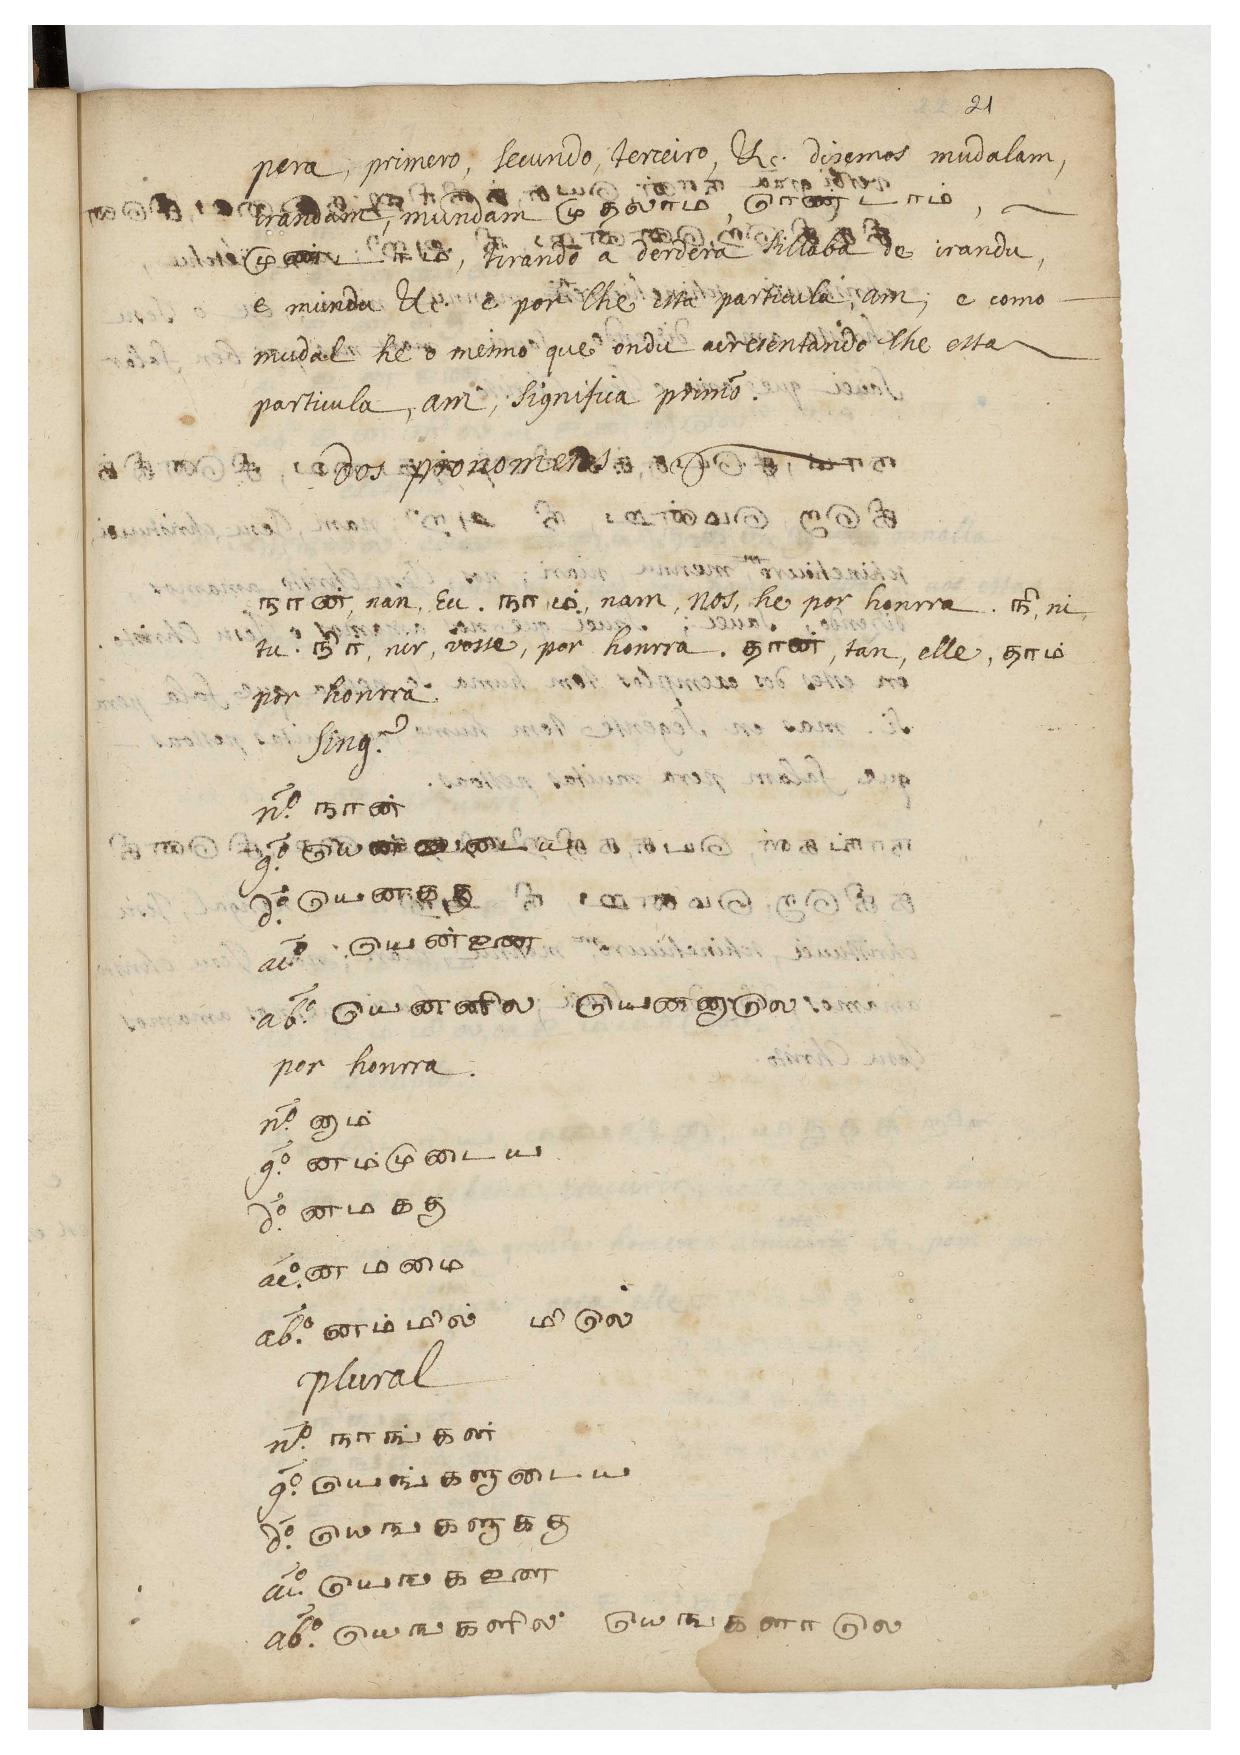 21
pera, primero, secundo, terceiro, &c. disemos mudalam,
irandam, mundam முதலாம், ரொண்டாம்,
tirando a derdera sillaba de irandu,
e mundu &c. e por lhe esta particula, am, e como
mudal he o mesmo que ondu acresentando lhe esta
particula, am, significa primo.
dos pronomens
நான், nan, Eu. நாம், nam, nos, he por honrra. நீ, ni,
tu. நீர், nir, vosse, por honrra. தான், tan, elle, தாம்
por honrra.
Sing.
n.º நான்
g.º யென்னுடைய
d.º யெனக்கு
ac.º யென்னை
ab.º யெனனில யெனனுலெ
por honrra.
n.º னாம்
g.º னம்முடைய
d.º னமககு
ac.º னமமை
ab.º னம்மில் மிலெ
plural
n.º நாங்கள்
g.º யெங்களுடைய
d.º யெஙகளுககு
ac.º யெஙகளை
ab.º யெஙகளில் யெஙகளாலெ